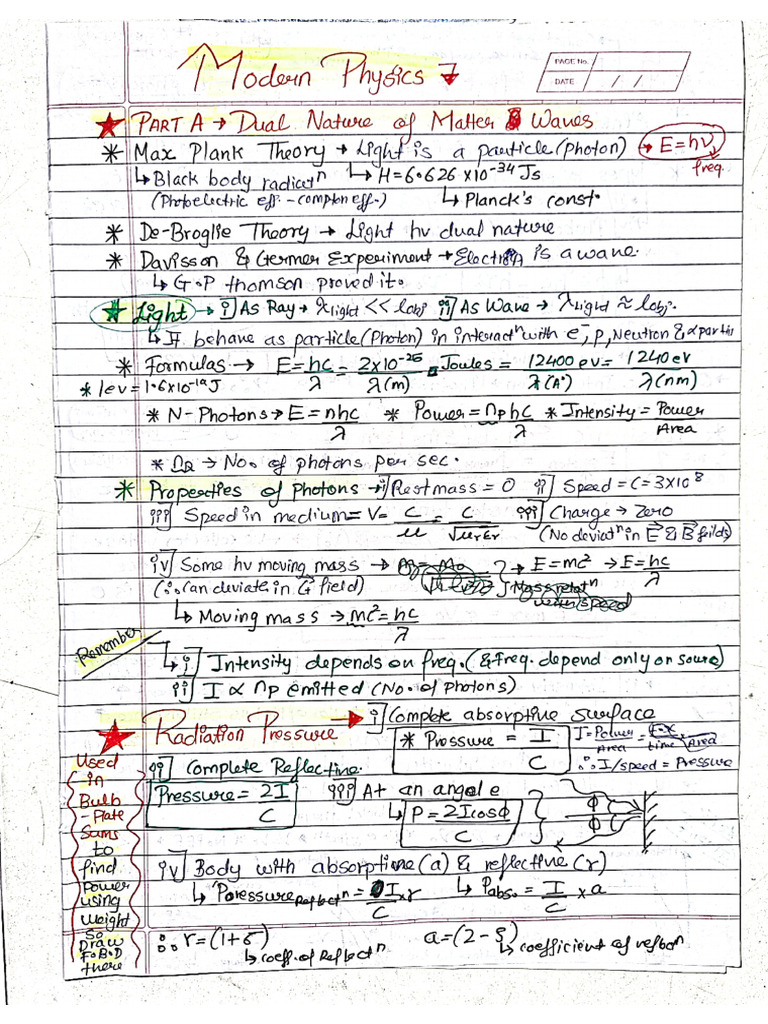 Modern Physics
PAGE No.
DATE / /
PART A → Dual Nature of Matter & Waves
* Max Plank Theory → Light is a particle (photon) → E=hν
↳ Black body radicatⁿ ↳ H=6.626×10⁻³⁴ Js freq.
(Photoelectric eff. - compton eff.) ↳ Planck's const.
* De-Broglie Theory → Light hv dual nature
* Davisson & Germer Experiment → Electron is a wave.
↳ G.P thomson proved it.
* Light → i] As Ray → λlight << lobj ii] As Wave → λlight ≈ lobj.
↳ It behave as particle (Photon) in interactⁿ with e⁻, p, Neutron & α partis
* Formulas → E = hc/λ = 2×10⁻²⁵/λ(m) Joules = 12400 ev/λ(A°) = 1240 ev/λ(nm)
* 1ev = 1.6×10⁻¹⁹ J
* N-Photons → E = nhc/λ * Power = nphc/λ * Intensity = Power/Area
* np → No. of photons per sec.
* Properties of Photons → i] Rest mass = 0 ii] Speed = C = 3×10⁸
iii] Speed in medium = V = C/μ = C/√μrεr iii] Charge → Zero
(No deviatⁿ in E & B feilds)
iv] Some hv moving mass → E=mc² → E=hc/λ
(∴ Can deviate in G field) Mass relatⁿ with speed
↳ Moving mass → mc² = hc/λ
Remember
↳ i] Intensity depends on freq. (& Freq. depend only on source)
ii] I ∝ np emitted (No. of photons)
Radiation Pressure → i] Complete absorptive surface
* Pressure = I/C
I = Power/Area = F·x/time × Area
∴ I/speed = Pressure
ii] Complete Reflective.
Pressure = 2I/C
iii] At an angle
↳ P = 2Icosϕ/C
ϕ
ϕ
iv] Body with absorptive (a) & reflective (r)
↳ Pressure Reflectⁿ = I/C × r ↳ Pabs. = I/C × a
∴ r = (1+
↳ coeff. of Reflectⁿ
a = (2-
↳ coefficient of
Used
in
Bulb
-Plate
Sums
to
find
Power
using
weight
So
Draw
F.B.D
there